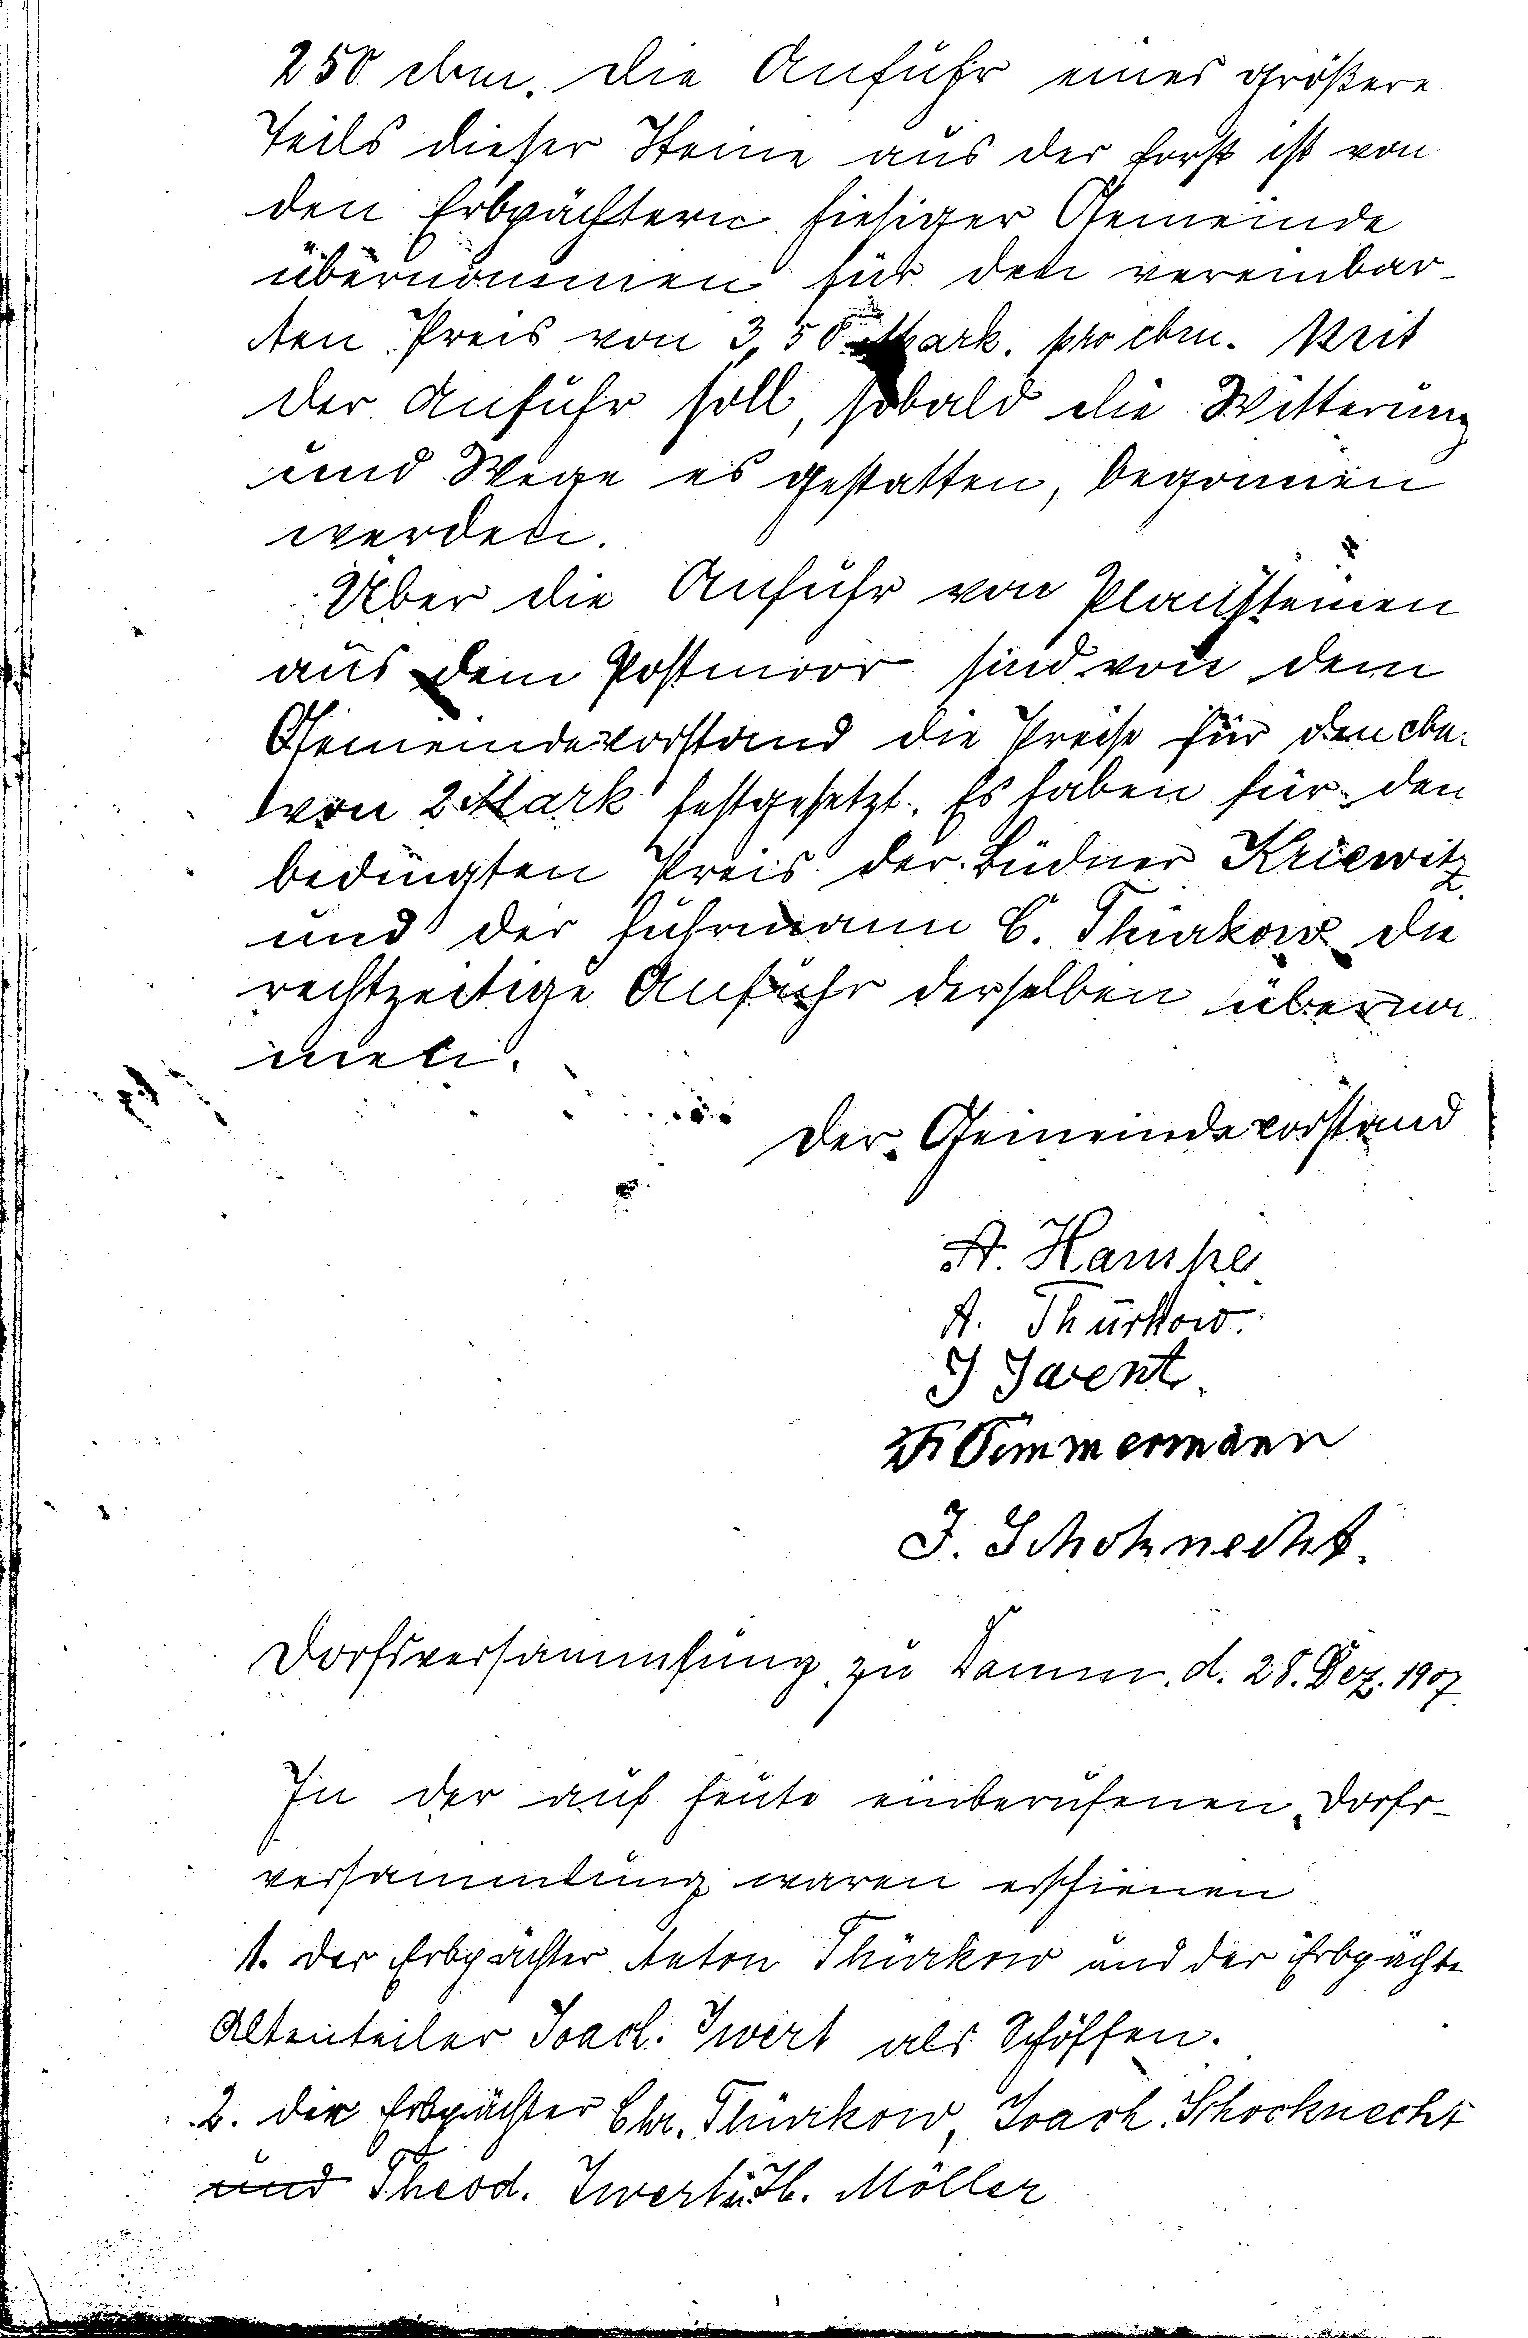 250 cbm. Die Anfuhr eines größere
Teils dieser Steine aus der Forst ist von
den Erbpächtern hiesiger Gemeinde
übernommen für den vereinbar-
ten Preis von 3,50 Mark. pro cbm. Mit
der Anfuhr soll, sobald die Witterung
und Wege es gestatten, begonnen
werden.
Über die Anfuhr von Plansteinen
aus dem Postmoor sind von dem
Gemeindevorstand die Preise für den cbm.
von 2 Mark festgesetzt. Es haben für den
bedingten Preis der Büdner Kriewitz
und der Fuhrmann C. Thürkow die
rechtzeitige Anfuhr derselben überno
men.
Der Gemeindevorstand
A. Hampe
A. Thürkow.
J
Fr Timmermann
J. Schoknecht.
Dorfsversammlung zu Damm. d. 28. Dez. 1907
In der auf heute einberufenen Dorfs-
versammlung waren erschienen
1. Der Erbpächter Anton Thürkow und der Erbpächte
Altenteiler Joach. Iwert als Schöffen.
2. die Erbpächter Chr. Thürkow, Joach. Schocknecht
und Theod. Iwert u. H. Möller